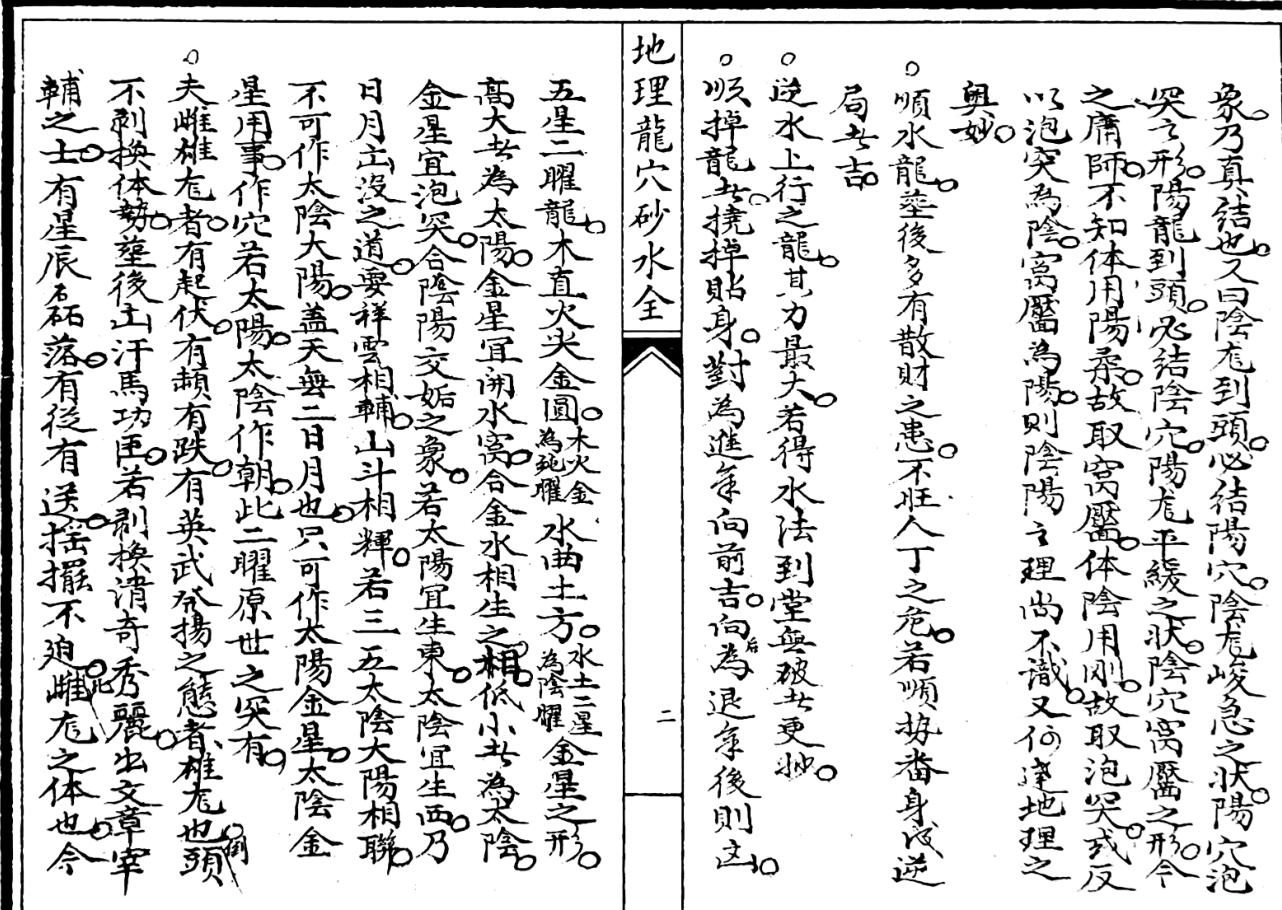 象乃真結也又曰陰龙到頭必結陽穴陰龙峻急之状陽穴泡
突之形陽龍到頭必結陰穴陽龙平緩之状陰穴窩靨之形今
之庸師不知体用陽柔故取窩靨体陰用刚故取泡突或反
以泡突為陰窩靨為陽則陰陽之理尚不識又何達地理之
奥妙
順水龍塟後多有散財之患不旺人丁之危若順势番身成逆
局者吉
逆水上行之龍其力最大若得水法到堂無破者更妙
順掉龍者撓掉貼身對為進年向前吉向后為退年後則凶
地理龍穴砂水全
二
五星二曜龍木直火尖金圓木火金為純曜水曲土方水土二星為陰曜金星之形
高大者為太陽金星宜開水窩合金水相生之相低小者為太陰
金星宜泡突合陰陽交姤之象若太陽宜生東太陰宜生西乃
日月出没之道要祥雲相輔山斗相輝若三五太陰大陽相聯
不可作太陰大陽盖天無二日月也只可作太陽金星太陰金
星用事作穴若太陽太陰作朝此二曜原世之罕有
夫雌雄龙者有起伏有頼有跌有英武发揚之態者雄龙也頭倒
不剥換体勢塟後出汗馬功臣若剥換清奇秀麗出文章宰
輔之士有星辰磊落有從有送摇擺不迫此雌龙之体也今